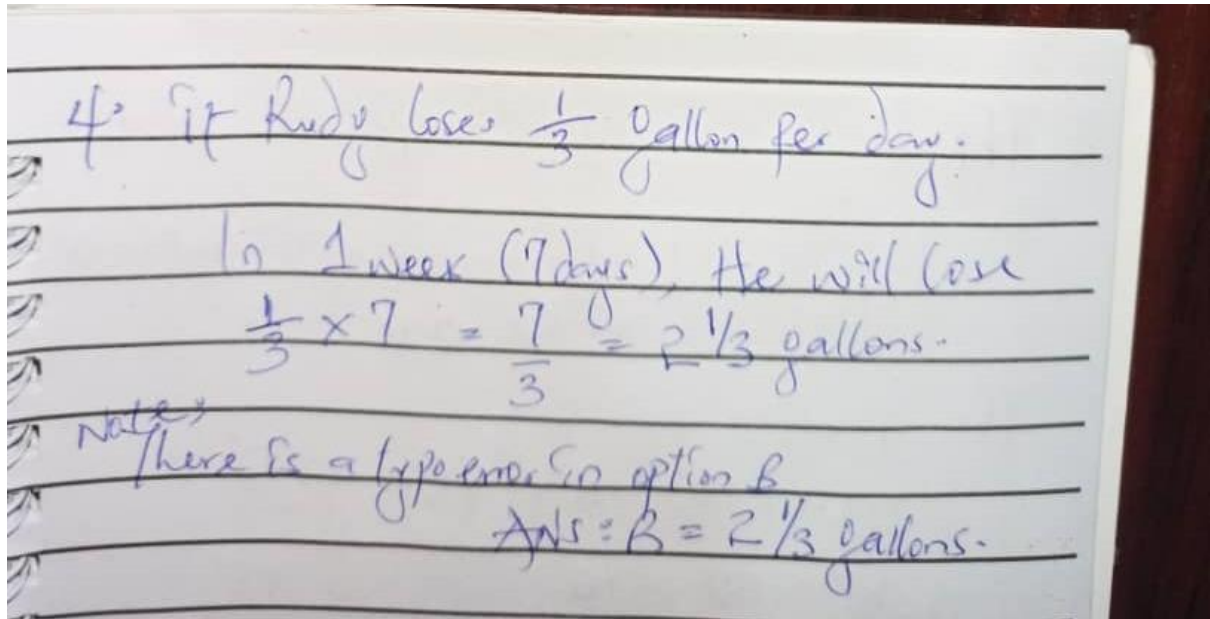 4. if Rudy loses 1/3 gallon per day.
In 1 week (7days), He will lose
1/3 × 7 = 7/3 = 2 1/3 gallons.
Note,
There is a typo error in option B
ANS: B = 2 1/3 gallons.